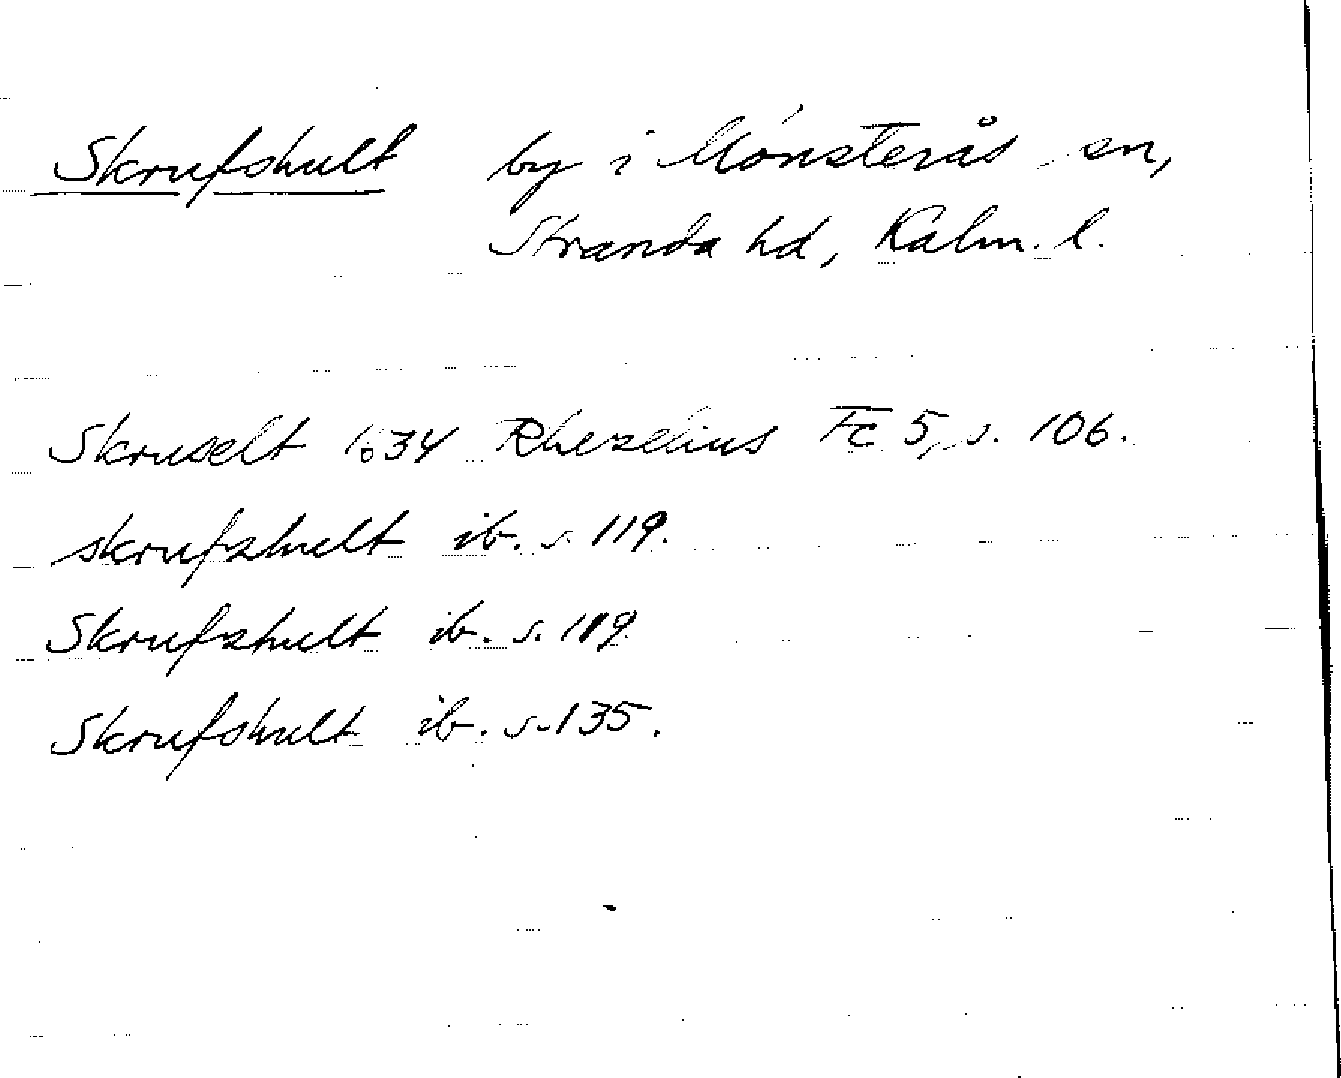 Skrufshult by i Mönsterås sn,
Stranda hd, Kalm. l.
Skruselt 1634 Rhezelius Fc 5, s. 106.
skrufzhult ib. s. 119.
Skrufzhult ib. s. 119.
Skrufshult ib. s. 135.